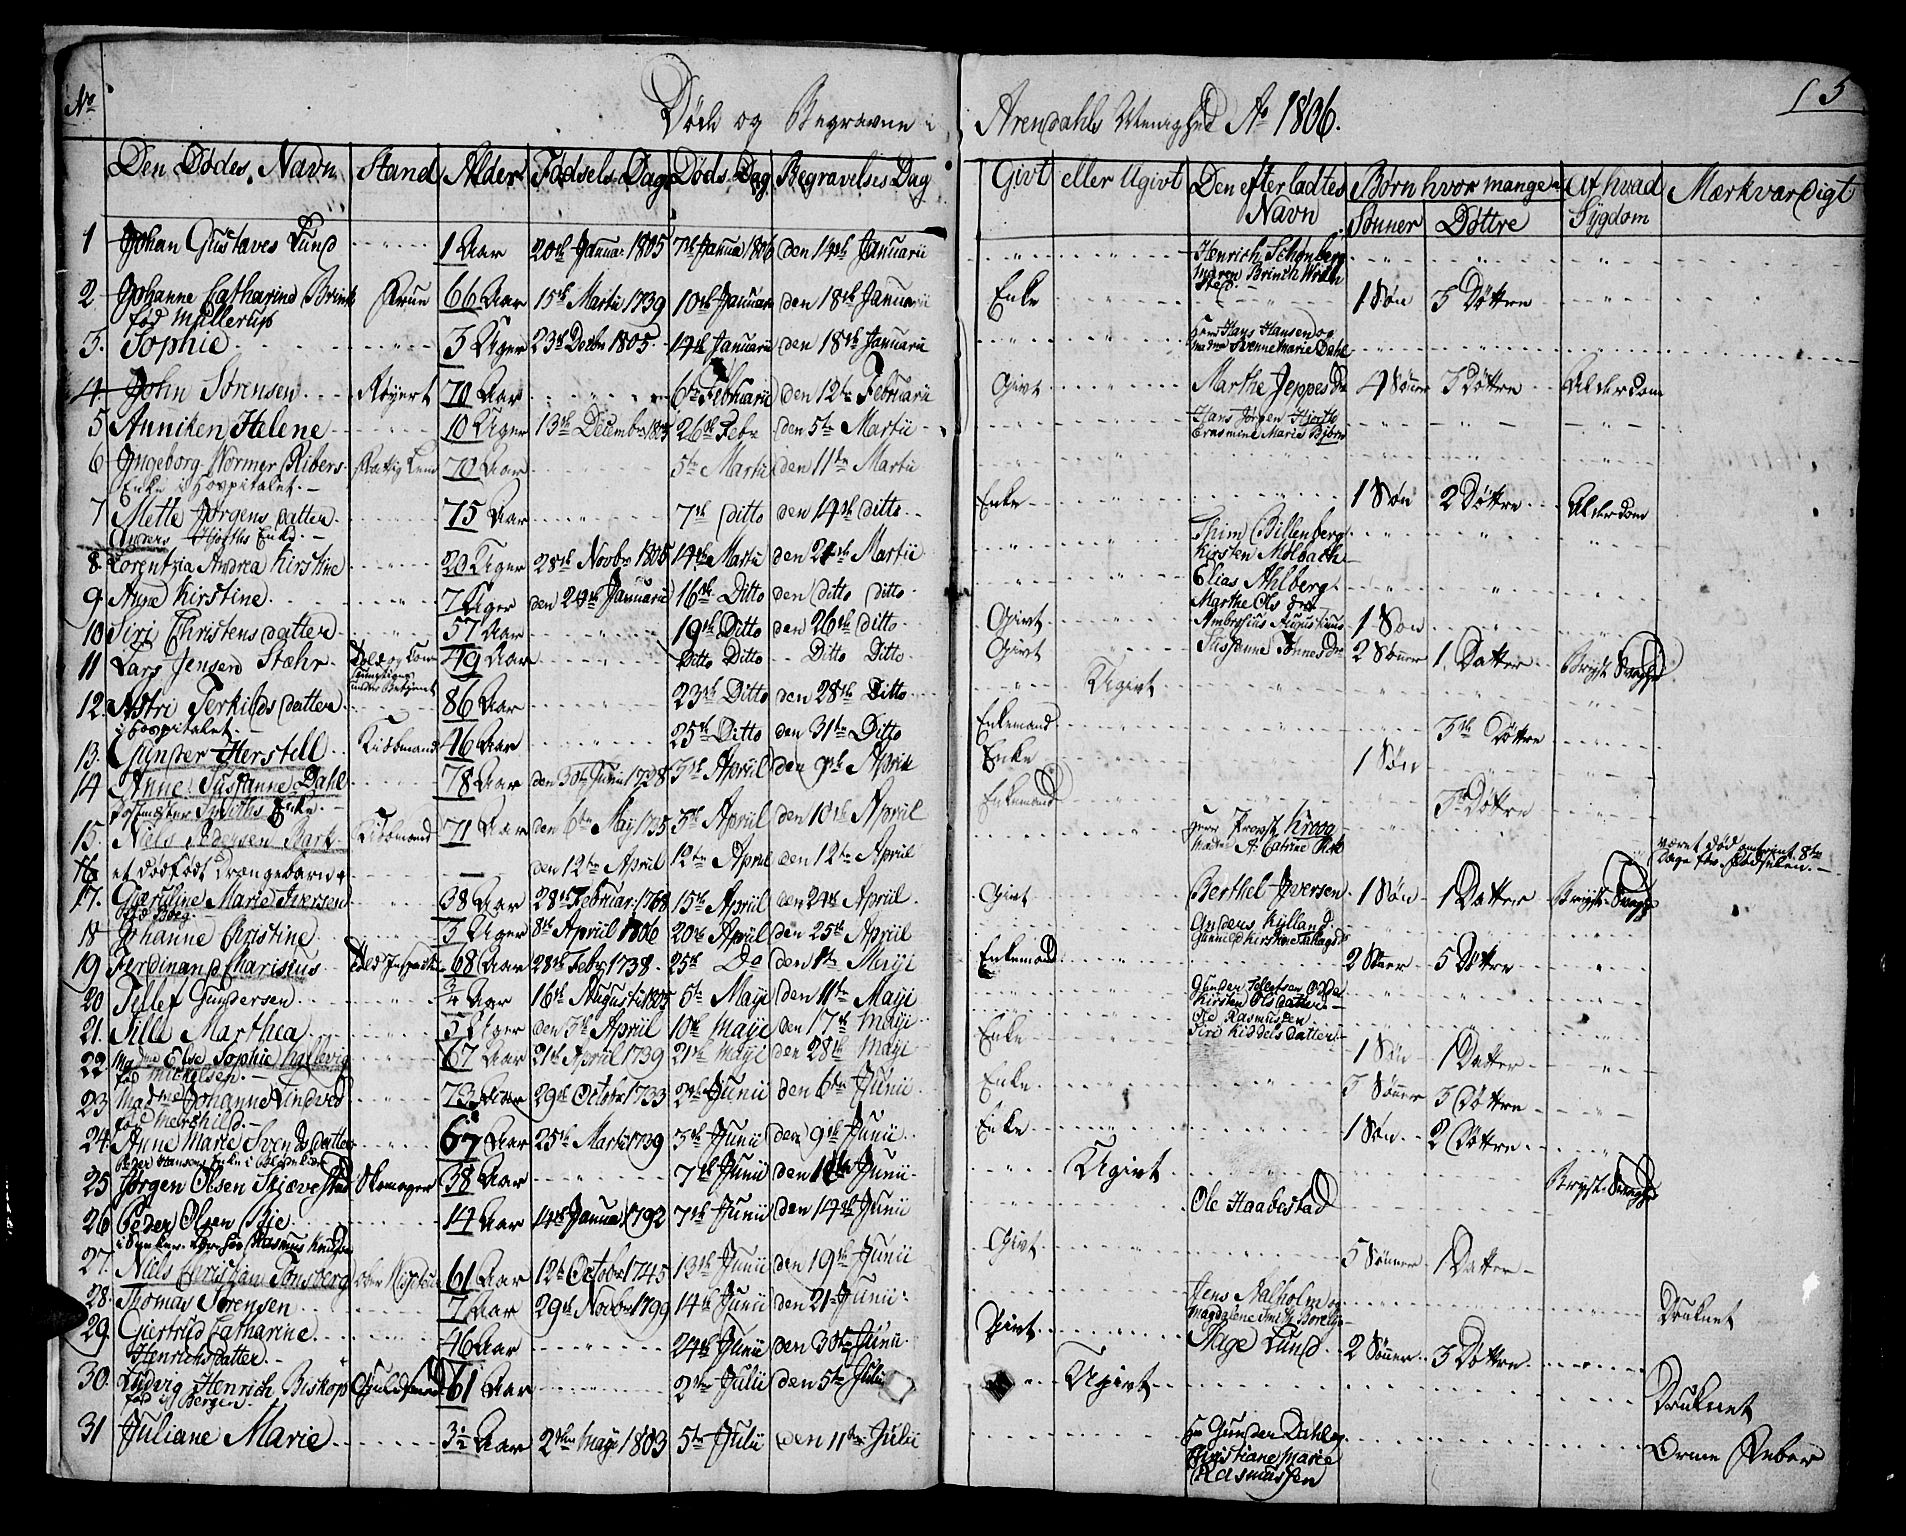 No
Døde og Begravne i Arendahls Menighed Ao 1806.
15
Den Dødes Navn | Stand | Alder | Fødsels Dag | Døds Dag | Begravelses Dag | Givt | eller Ugivt | Den efterladtes Navn | Børn hvor mange | Af hvad Sygdom | Mærkværdigt
Sønner | Døttre
1 Johan Gustaves Lund | 1 Aar | 20de Janua: 1805 | 7de Janua 1806 | den 14de Januarii | Henrich Schonberg
Maren Brinch
2 Johanne Catharine Brink | Frue | 66 Aar | 15de Martii 1739 | 10de Januari | den 18de Januarii | Enke | 1 Søn | 3 Døttre
fød Mullerup
3. Sophie | 3 Uger | 23de Decbr 1805 | 14de Januarii | den 18de Januarii | Hans Hansen og
Svenne Marie Dahl
4 John Sørensen | 70 Aar | 6te Februarii | den 12te Februarii | Givt | Marthe Jeppesdr | 4 Sønner | 3 Døttre | Alderdom
5 Anniken Helene | 10 Uger | 13de Decembr 1805 | 26de Febr | den 5te Martii | Hans Jørgen Hjorth
Erasmine Marie Bjørn
6 Ingeborg Normer Ribers | Fattig Lem | 70 Aar | 5te Martii | den 11te Martii
Enke i Hospitalet.
7 Mette Jørgensdatter | 75 Aar | 7de ditto | den 14de ditto | Enke | 1 Søn | 2 Døttre | Alderdom
Anders Enke.
8 Lorentzia Andrea Kirstine | 20 Uger | 28de Novbr 1805 | 14de Martii | den 21de Martii | Thim Billenberg
Kirsten Molbach
9 Anne Kirstine | 7 Uger | den 24de Januarii | 16de Ditto | den ditto ditto | Elias Ahlberg
Marthe Olsdatr
10 Siri Christensdatter | 57 Aar | 19de Ditto | den 26de ditto | Givt | Ambrosius Augustinus | 1 Søn
11 Lars Jensen Stæhr | 49 Aar | Ditto Ditto | Ditto Ditto | Givt | Susanne Tønnesdr | 2 Sønner | 1 Datter | Bryst Svaghed
12. Astri Terkildsdatter | 86 Aar | 23de Ditto | den 28de Ditto | Ugivt
i Hospitalet.
13. Gunder Herstell | Kiøbmand | 46 Aar | 25de Ditto | den 31te Ditto | Enkemand | 3de Døttre
14 Anne Susanne Dahl | 78 Aar | den 30te Junii 1728 | 3de April | den 9de April | Enke | 1 Søn
Postmester Enke.
15. Niels Pedersen Bark | Kiøbmand | 71 Aar | den 6te Maij 1735 | 3de April | den 10de April | Enkemand | 3de Døttre
16 et dødfødt Drængebarn | den 12te April | 12te April | den 12te April | Herr Provst Kroog | været død omtrent 8te
Dage før Fødselen.
17. Gieruline Marie Iversen | 38 Aar | 28de Februar: 1768 | 15de April | den 24de April | Givt | Berthel Iversen | 1 Søn | 1 Datter | Bryst Svaghed
fød Boeg
18 Johanne Christine | 3 Uger | 8de April 1806 | 20de April | den 25de April | Anders Kylland
Gunnild Kirstine
19 Ferdinand Charisius | 68 Aar | 28de Febr 1738 | 25de Do | den 1te Mayi | Enkemand | 2 Sønner | 5 Døttre
20 Tellef Gundersen | 3/4 Aar | 16de Augusti 1805 | 5te Mayi | den 11te Mayi | Gunder Tellefsen
Kirsten Olsdatter
21. Sille Marthea | 5 Uger | den 3de April | 10de Maye | den 17de Mayi | Ole Rasmussen
Siri Kiddelsdatter
22. Madme Else Sophie Kallevig | 67 Aar | 21de April 1739 | 21de Mayi | den 28de Mayi | Enke | 1 Søn | 1 Datter
fød Michelsen.
23 Madme Johanne Vindved | 73 Aar | 29de Octobr 1733 | 2den Junii | den 6te Junii | Enke | 3 Sønner | 3 Døttre
fød Herskild.
24. Anne Marie Svendsdatter | 67 Aar | 25de Martii 1739 | 3de Junii | den 9de Junii | Enke | 1 Søn | 2 Døttre
Peder Hansens Enke i
25 Jørgen Olsen Skjævestad | Skomager | 38 Aar | 7de Junii | den 14de Junii | Ugivt | Bryst Svaghed
26 Peder Olsen Bje | 14 Aar | 14de Janua: 1792 | 7de Junii | den 14de Junii | Ole Haabestad
Rasmus Knudsen
27. Niels Christian Tønsberg | 61 Aar | 12te Octobr 1745 | 13de Junii | den 19de Junii | Givt | 5 Sønner | 1 Datter
28. Thomas Sørensen | 7 Aar | 29de Novbr 1799 | 14de Junii | den 21de Junii | Jens Malholm og
Magdalene | Druknet
29. Giertrud Catharine | 46 Aar | 24de Junii | den 30te Junii | Givt | Aage Lund | 2 Sønner | 3 Døttre
Henrichsdatter.
30. Ludvig Henrich Biskop | Guldsmed | 61 Aar | 2den Julii | den 5te Julii | Ugivt | Druknet
fød i Bergen.
31 Juliane Marie | 3 1/2 Aar | 2den Maji 1803 | 5te Julii | den 11te Julii | Hr Gunder Dahl og
Christiane Marie
Rasmussen | Orme Feber